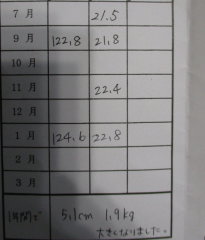 7 月 21.5
9 月 122.8 21.8
10 月
11 月 22.4
12 月
1 月 124.6 22.8
2 月
3 月
1年間で 5.1cm 1.9kg
大きくなりました。